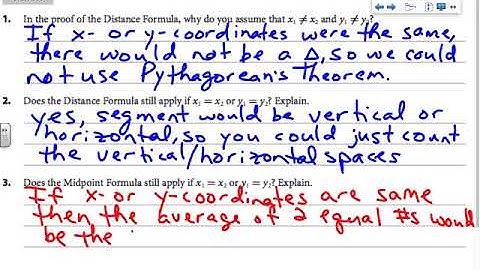 1. In the proof of the Distance Formula, why do you assume that x₁ ≠ x₂ and y₁ ≠ y₂?
If x- or y-coordinates were the same,
there would not be a Δ, so we could
not use Pythagorean's Theorem.
2. Does the Distance Formula still apply if x₁ = x₂ or y₁ = y₂? Explain.
yes, segment would be vertical or
horizontal, so you could just count
the vertical/horizontal spaces
3. Does the Midpoint Formula still apply if x₁ = x₂ or y₁ = y₂? Explain.
If x- or y-coordinates are same
then the average of 2 equal #s would
be the